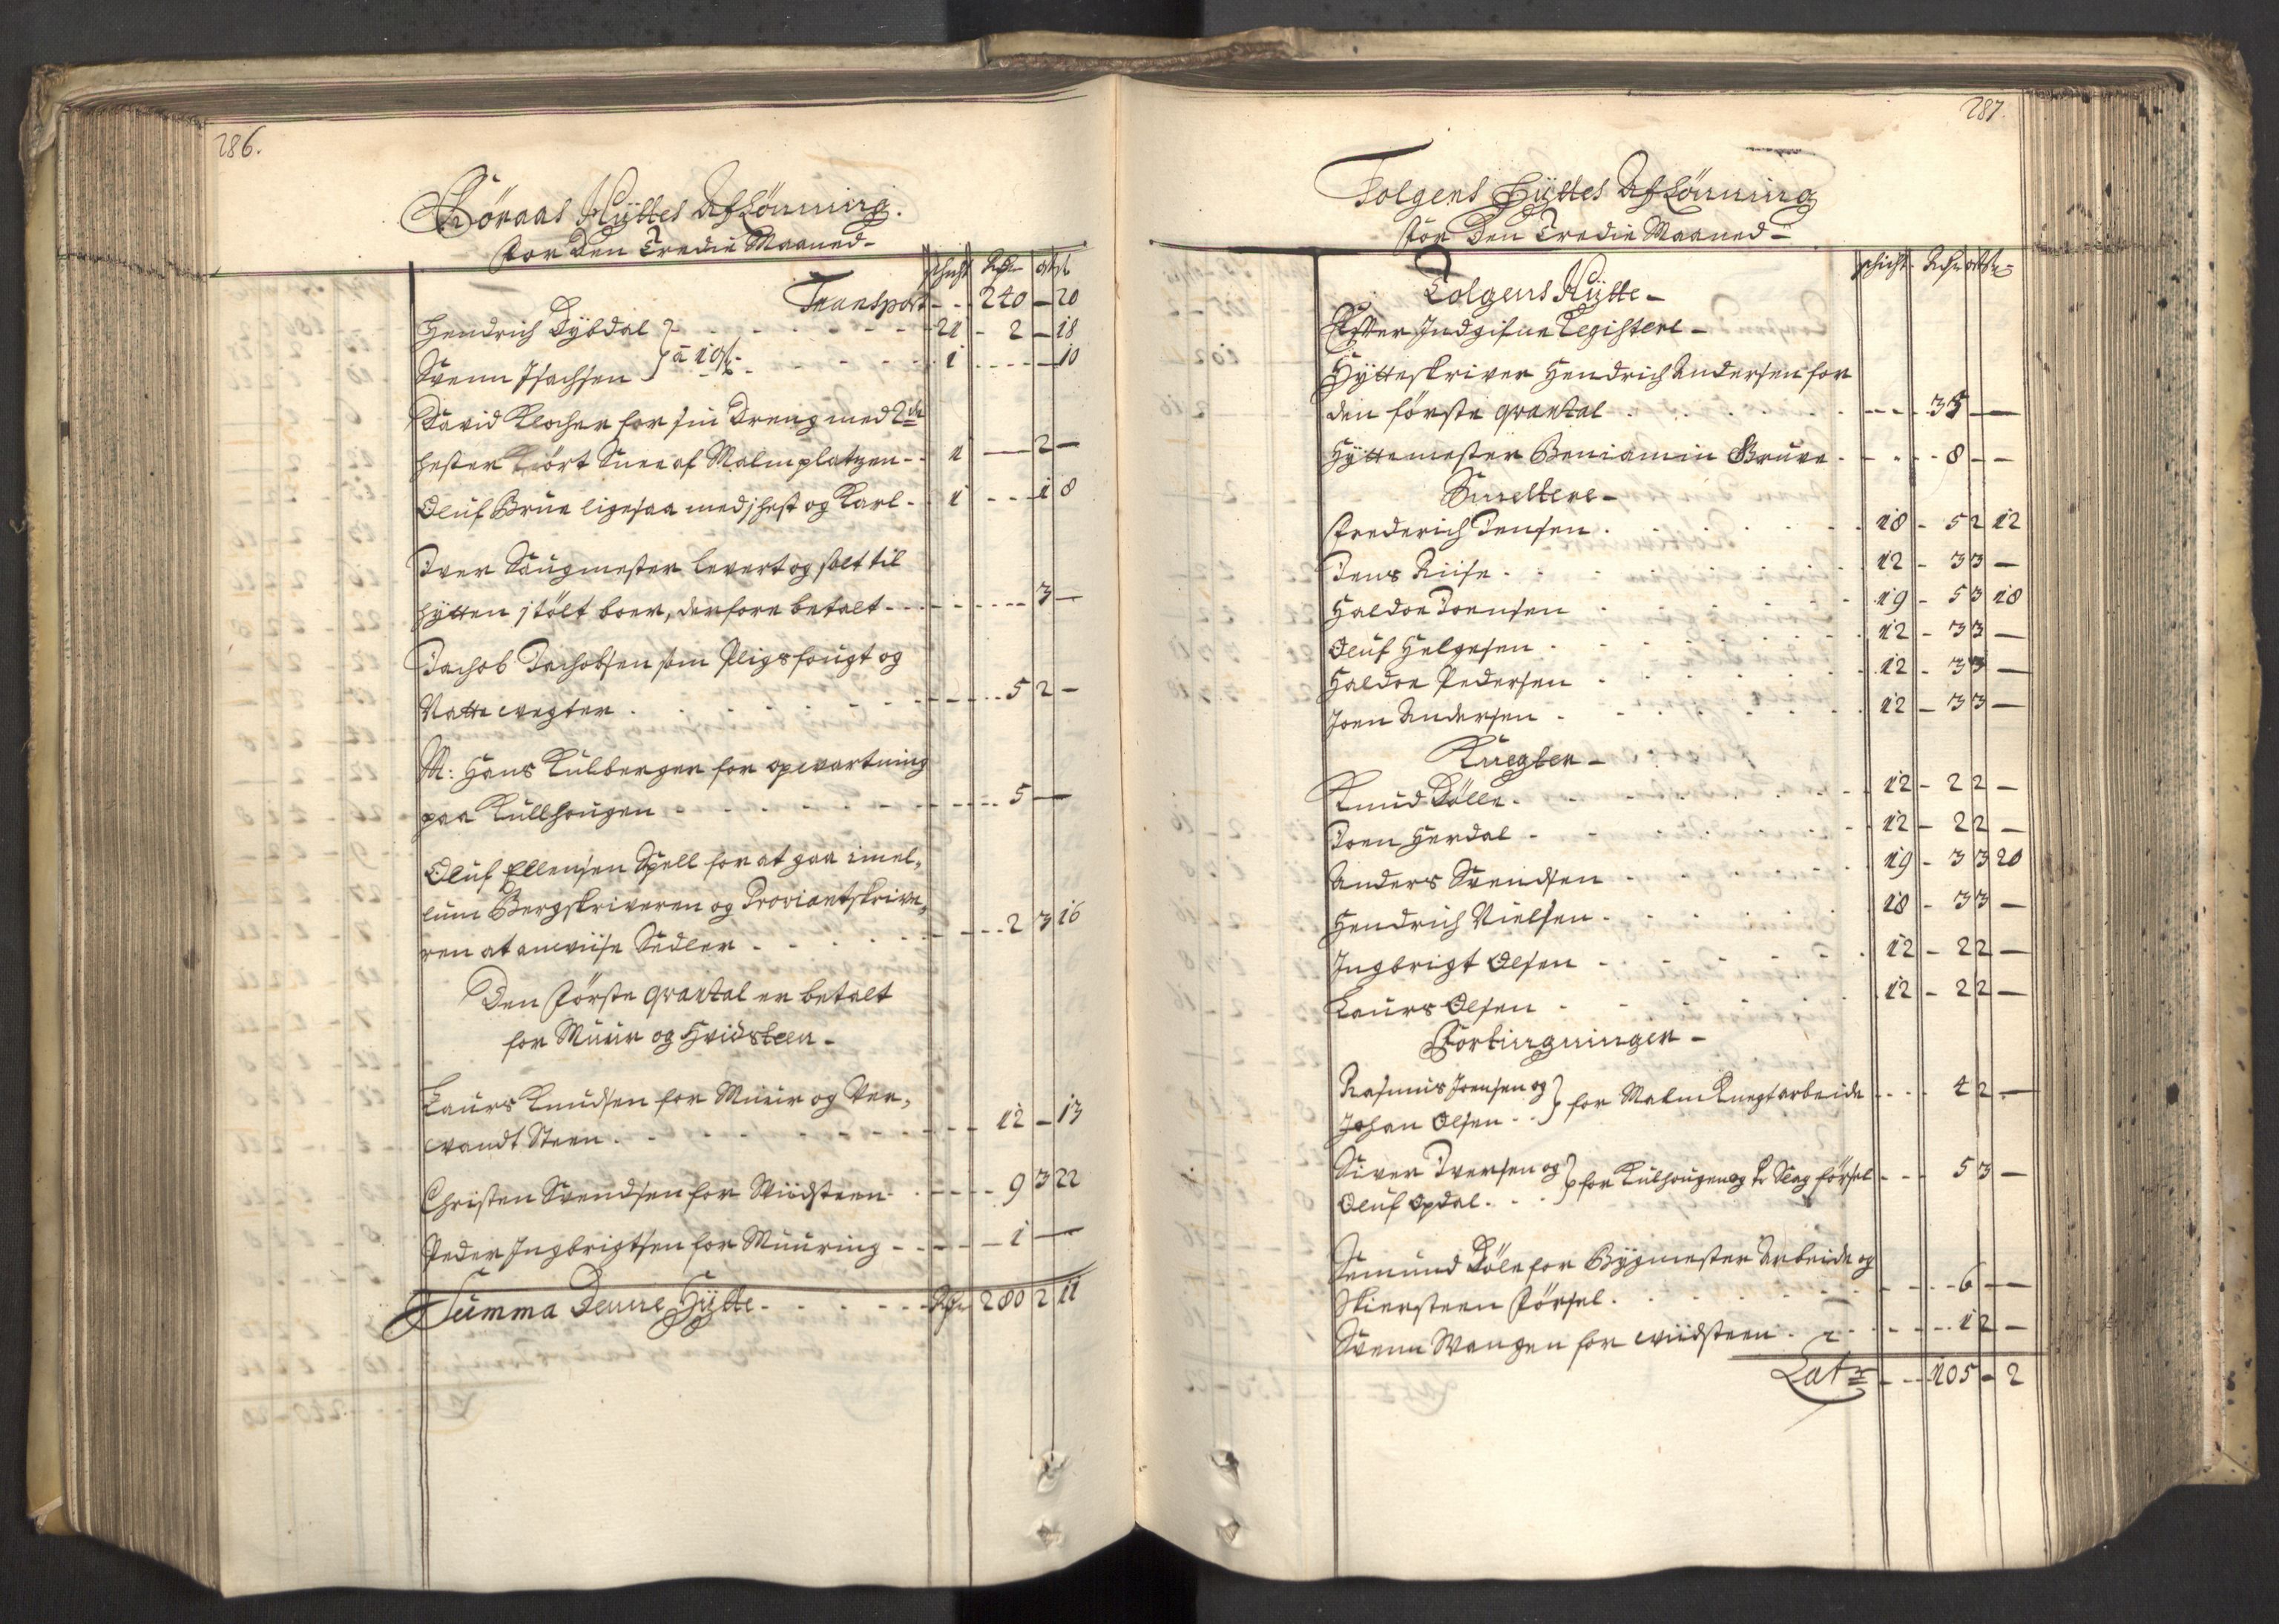 286.
Röraas Hÿttes Aflönning.
for den Tredie Maaned-
schicht Rdr ort ß
Transport - - 240 - 20
Hendrich Dÿbdal - 21 - 2 - 18
Svenn Isachsen } a 10 ß - 1 - - - 10
David Klocher for sin Dreng med 2de
hester kiört Snee af Malmplatzen - - 1 - 2 -
Oluf Brun ligesaa med j hest og Karl - 1 - - 1 8
Iver Saugmester levert og solt til
hÿtten j tölt boer, derfore betalt - - - 3 -
Jachob Jachobsen som Pligsfougt og
Natte vegter - - - 5 2 -
M: Hans Kulberger for opvartning
paa Kullhougen - - - 5 -
Oluf Ellensen Spell for at gaa imel,
lum Bergskriveren og Proviantskrive,
ren at anviise Sedler - - - 2 3 16
Den förste qvartal er betalt
for Muur og Hvidsteen -
Laurs Knudsen for Muur og Ver,
vandt Steen - - - 12 - 13
Christen Svendsen for Viidsteen - - - 9 3 22
Peder Ingbrigtsen for Muuring - - - 1 -
Summa Denne Hÿtte - - - Rdr 280 2 11
287.
Tolgens Hÿttes Aflönning
för Den Tredie Maaned -
schicht Rdr ort ß
Tolgens Hÿtte -
Efter Indgifne Registere -
Hÿtteskriver Hendrich Andersen for
den förste qvartal - - - 35 -
Hÿttemester Beniamin Bruun - - - 8 - -
Smeltere -
Frederich Jensen - 18 - 5 2 12
Jens Riise - 12 - 3 3 -
Haldor Joensen - 19 - 5 3 18
Oluf Helgesen - 12 - 3 3 -
Haldor Pedersen - 12 - 3 3 -
Joen Andersen - 12 - 3 3 -
Knegter -
Knud Dölle - 12 - 2 2 -
Joen Herdal - 12 - 2 2 -
Anders Svendsen - 19 - 3 3 20
Hendrich Nielsen - 18 - 3 3 -
Ingbrigt Olsen - 12 - 2 2 -
Laurs Olsen - 12 - 2 2 -
Fortingninger -
Rasmus Joensen og
Johan Olsen - } for Malm Knegt arbeide - - 4 2 -
Siver Iversen og
Oluf Opdal - } for Kulhougen og Slag försel - - 5 3 -
Semund Döle for Bÿgmester Arbeide og
Skiersteen försel - - - 6 -
Svenn Vangen for viidsteen - - - 12 -
Lats - - 105 - 2